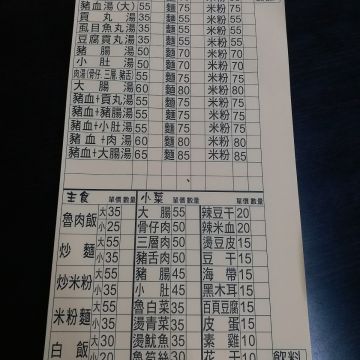 豬血湯(大) 55 麵 75 米粉 75
貢丸湯 35 麵 55 米粉 55
虱目魚丸湯 35 麵 55 米粉 55
豆腐貢丸湯 35 麵 55 米粉 55
豬腸湯 50 麵 70 米粉 70
小肚湯 50 麵 70 米粉 70
肉湯(骨仔、三層、豬舌) 55 麵 75 米粉 75
大腸湯 60 麵 80 米粉 80
豬血+貢丸湯 55 麵 75 米粉 75
豬血+豬腸湯 55 麵 75 米粉 75
豬血+小肚湯 55 麵 75 米粉 75
豬血+肉湯 60 麵 80 米粉 80
豬血+大腸湯 65 麵 85 米粉 85
主食 單價 數量 小菜 單價 數量 單價 數量
魯肉飯 大 35 大腸 55 辣豆干 20
小 25 骨仔肉 50 辣米血 20
炒麵 大 55 三層肉 50 燙豆皮 15
小 35 豬舌肉 50 豆干 15
炒米粉 大 55 豬腸 45 海帶 20
小 35 小肚 45 黑木耳 15
米粉麵 大 55 魯白菜 35 百頁豆腐 20
小 35 燙青菜 35 皮蛋 15
白飯 大 30 燙魷魚 35 素雞 10
小 20 魚筍絲 30 花干 10
飲料